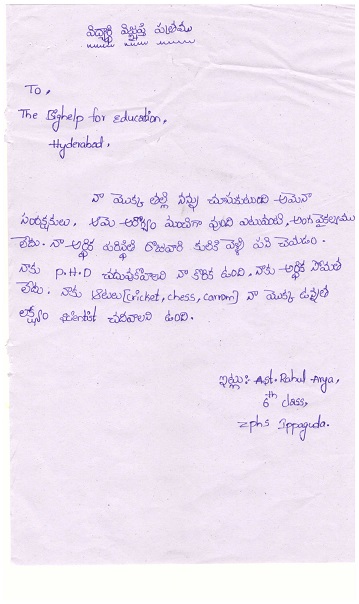 విద్యార్థి విజ్ఞప్తి పత్రము
To,
The Bighelp for Education,
Hyderabad,
నా యొక్క తల్లి నన్ను చూసుకుంటుంది ఆమెనా
సంరక్షకులు. ఆమె ఆరోగ్యం మంచిగా వుంది ఎటువంటి, అంగవైకల్యము
లేదు. నా ఆర్థిక పరిస్థితి రోజువారి కూలికి వెళ్లి పని చేయడం.
నాకు P.H.D చదువుకోవాలని నా కోరిక ఉంది, నాకు ఆర్థిక స్తోమత
లేదు. నాకు ఆటలు [cricket, chess, carrom] నా యొక్క ఉన్నత
లక్ష్యం చదివాలని ఉంది.
ఇట్లు:- Ast. Rahul Arya,
6th class,
zphs Ippaguda.